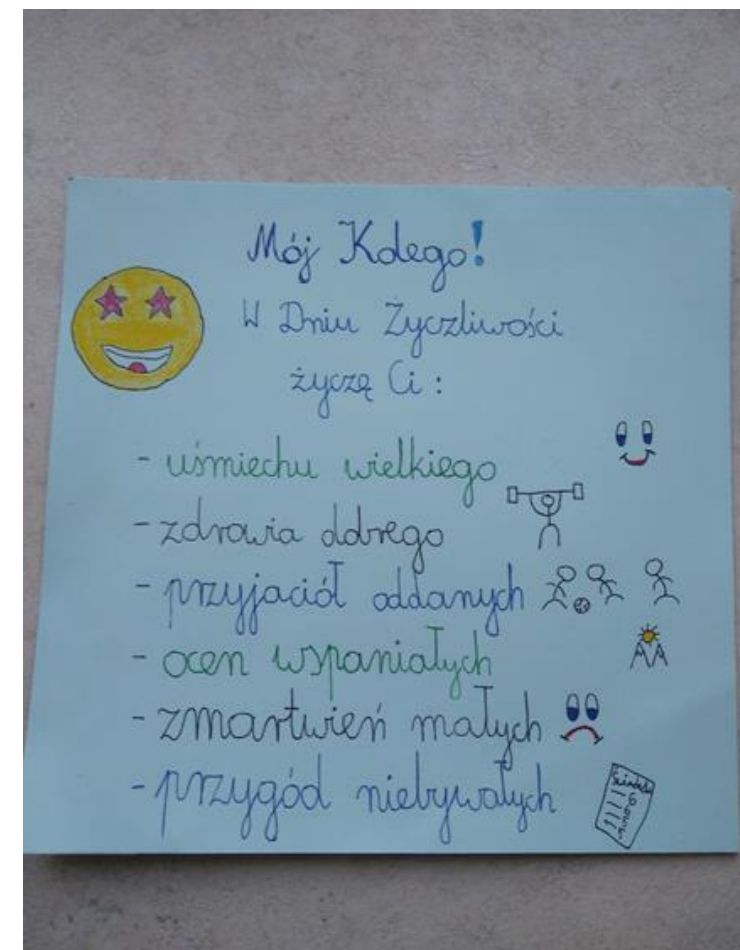 Mój Kolego!
W Dniu Życzliwości
życzę Ci :
- uśmiechu wielkiego
- zdrowia dobrego
- przyjaciół oddanych
- ocen wspaniałych
- zmartwień małych
- przygód niebywałych